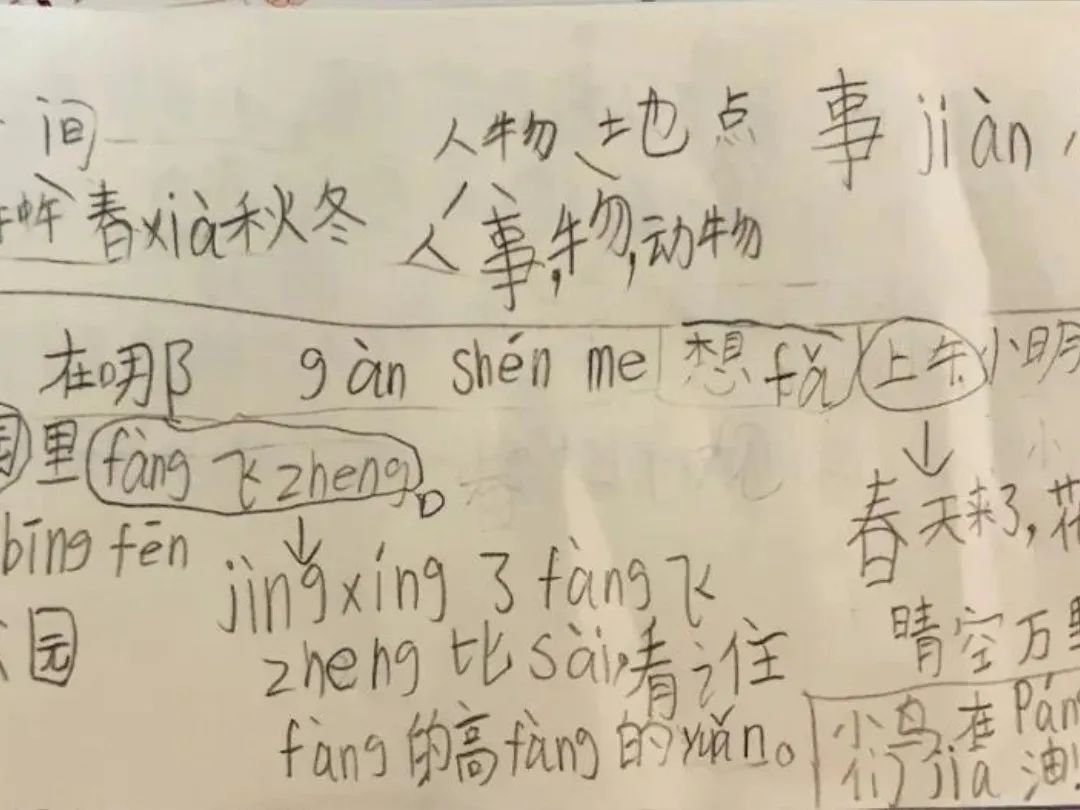 间 人物、地点 事 jiàn
春 xià 秋冬 人、事,物,动物
在哪 gàn shén me 想 fǎ 上午 小明
园里 fàng 飞 zheng。
bīng fēn
jìng xíng 了 fàng 飞
zheng 比 sài,看谁住
fàng 的高 fàng 的 yuǎn。
园
春天来了,花
晴空万里
小鸟在 Pán
们 jia 油